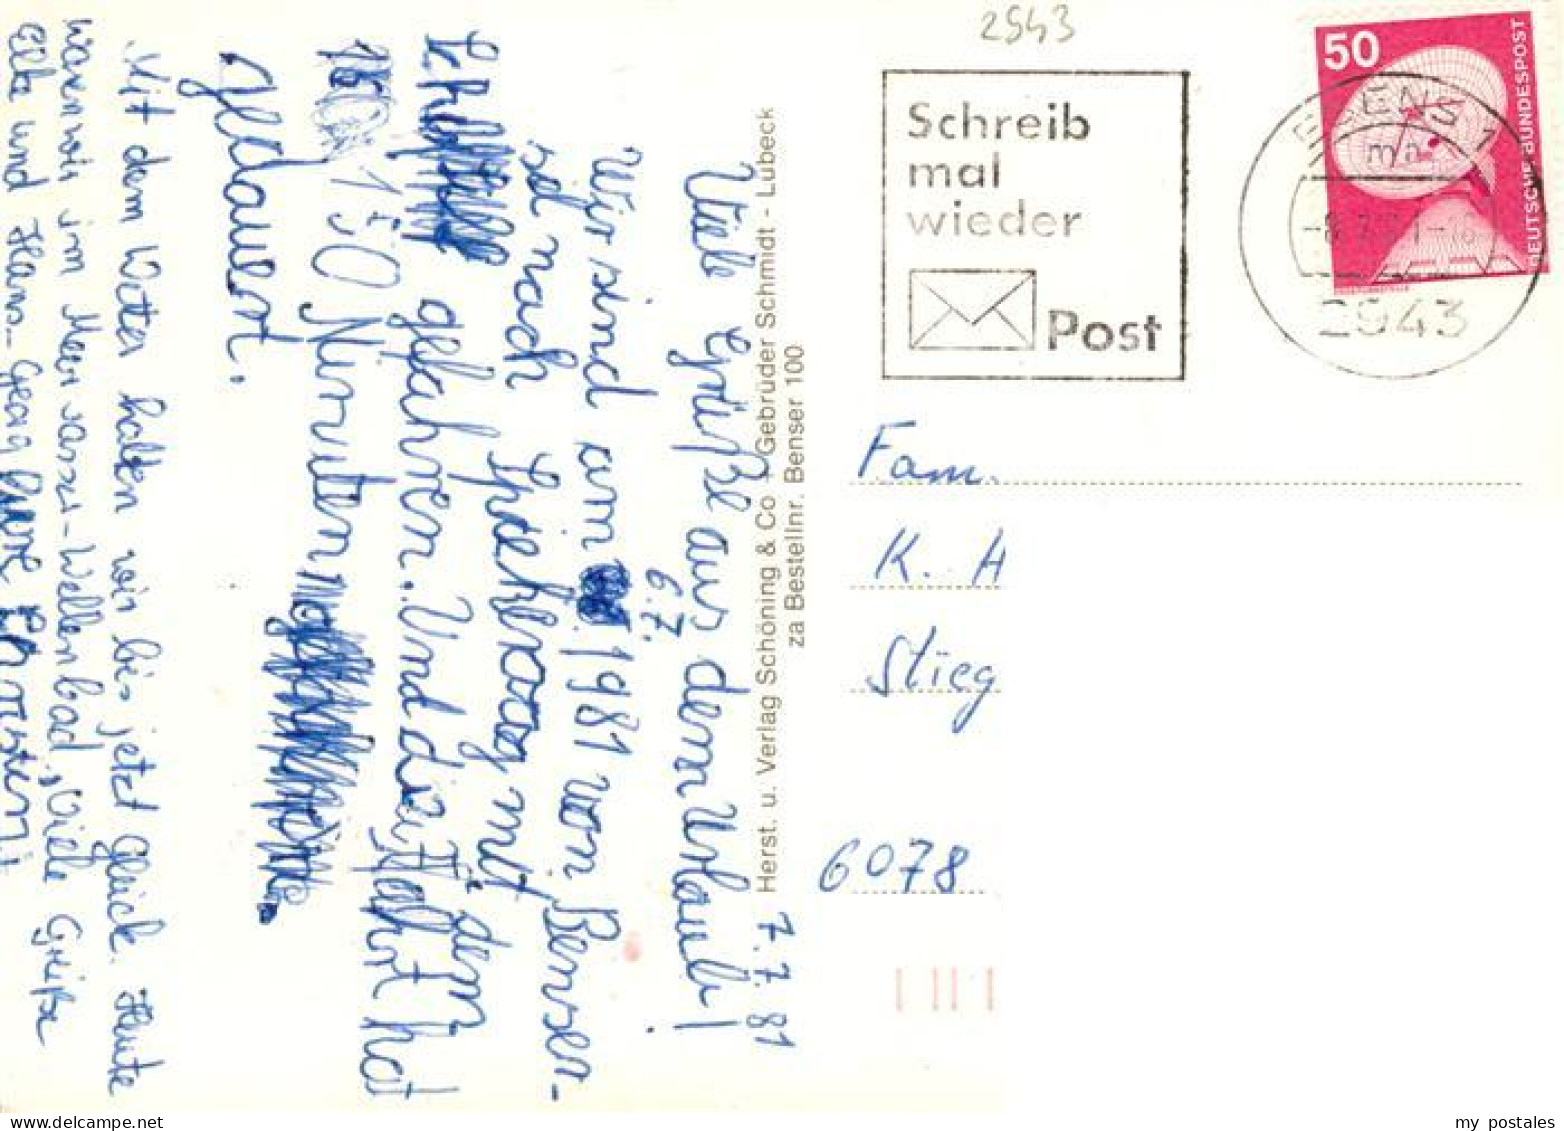 2943
50
DEUTSCHE BUNDESPOST
ESENS 1
ma
-8.7.81-16
2943
Schreib
mal
wieder
Post
Fam.
K. H
Stieg
6078
Herst. u. Verlag Schöning & Co + Gebrüder Schmidt - Lübeck
za Bestellnr. Benser 100
7.7.81
Viele Grüße aus dem Urlaub!
6.7.
Wir sind am 1981 von Benser-
siel nach Spiekeroog mit dem
Schiff gefahren. Und die Fahrt hat
150 Minuten
gedauert.
Mit dem Wetter halten wir bis jetzt Glück. Heute
waren wir im Meerwasser-Wellenbad. Viele Grüße
Elke und Hans-Georg
my postales